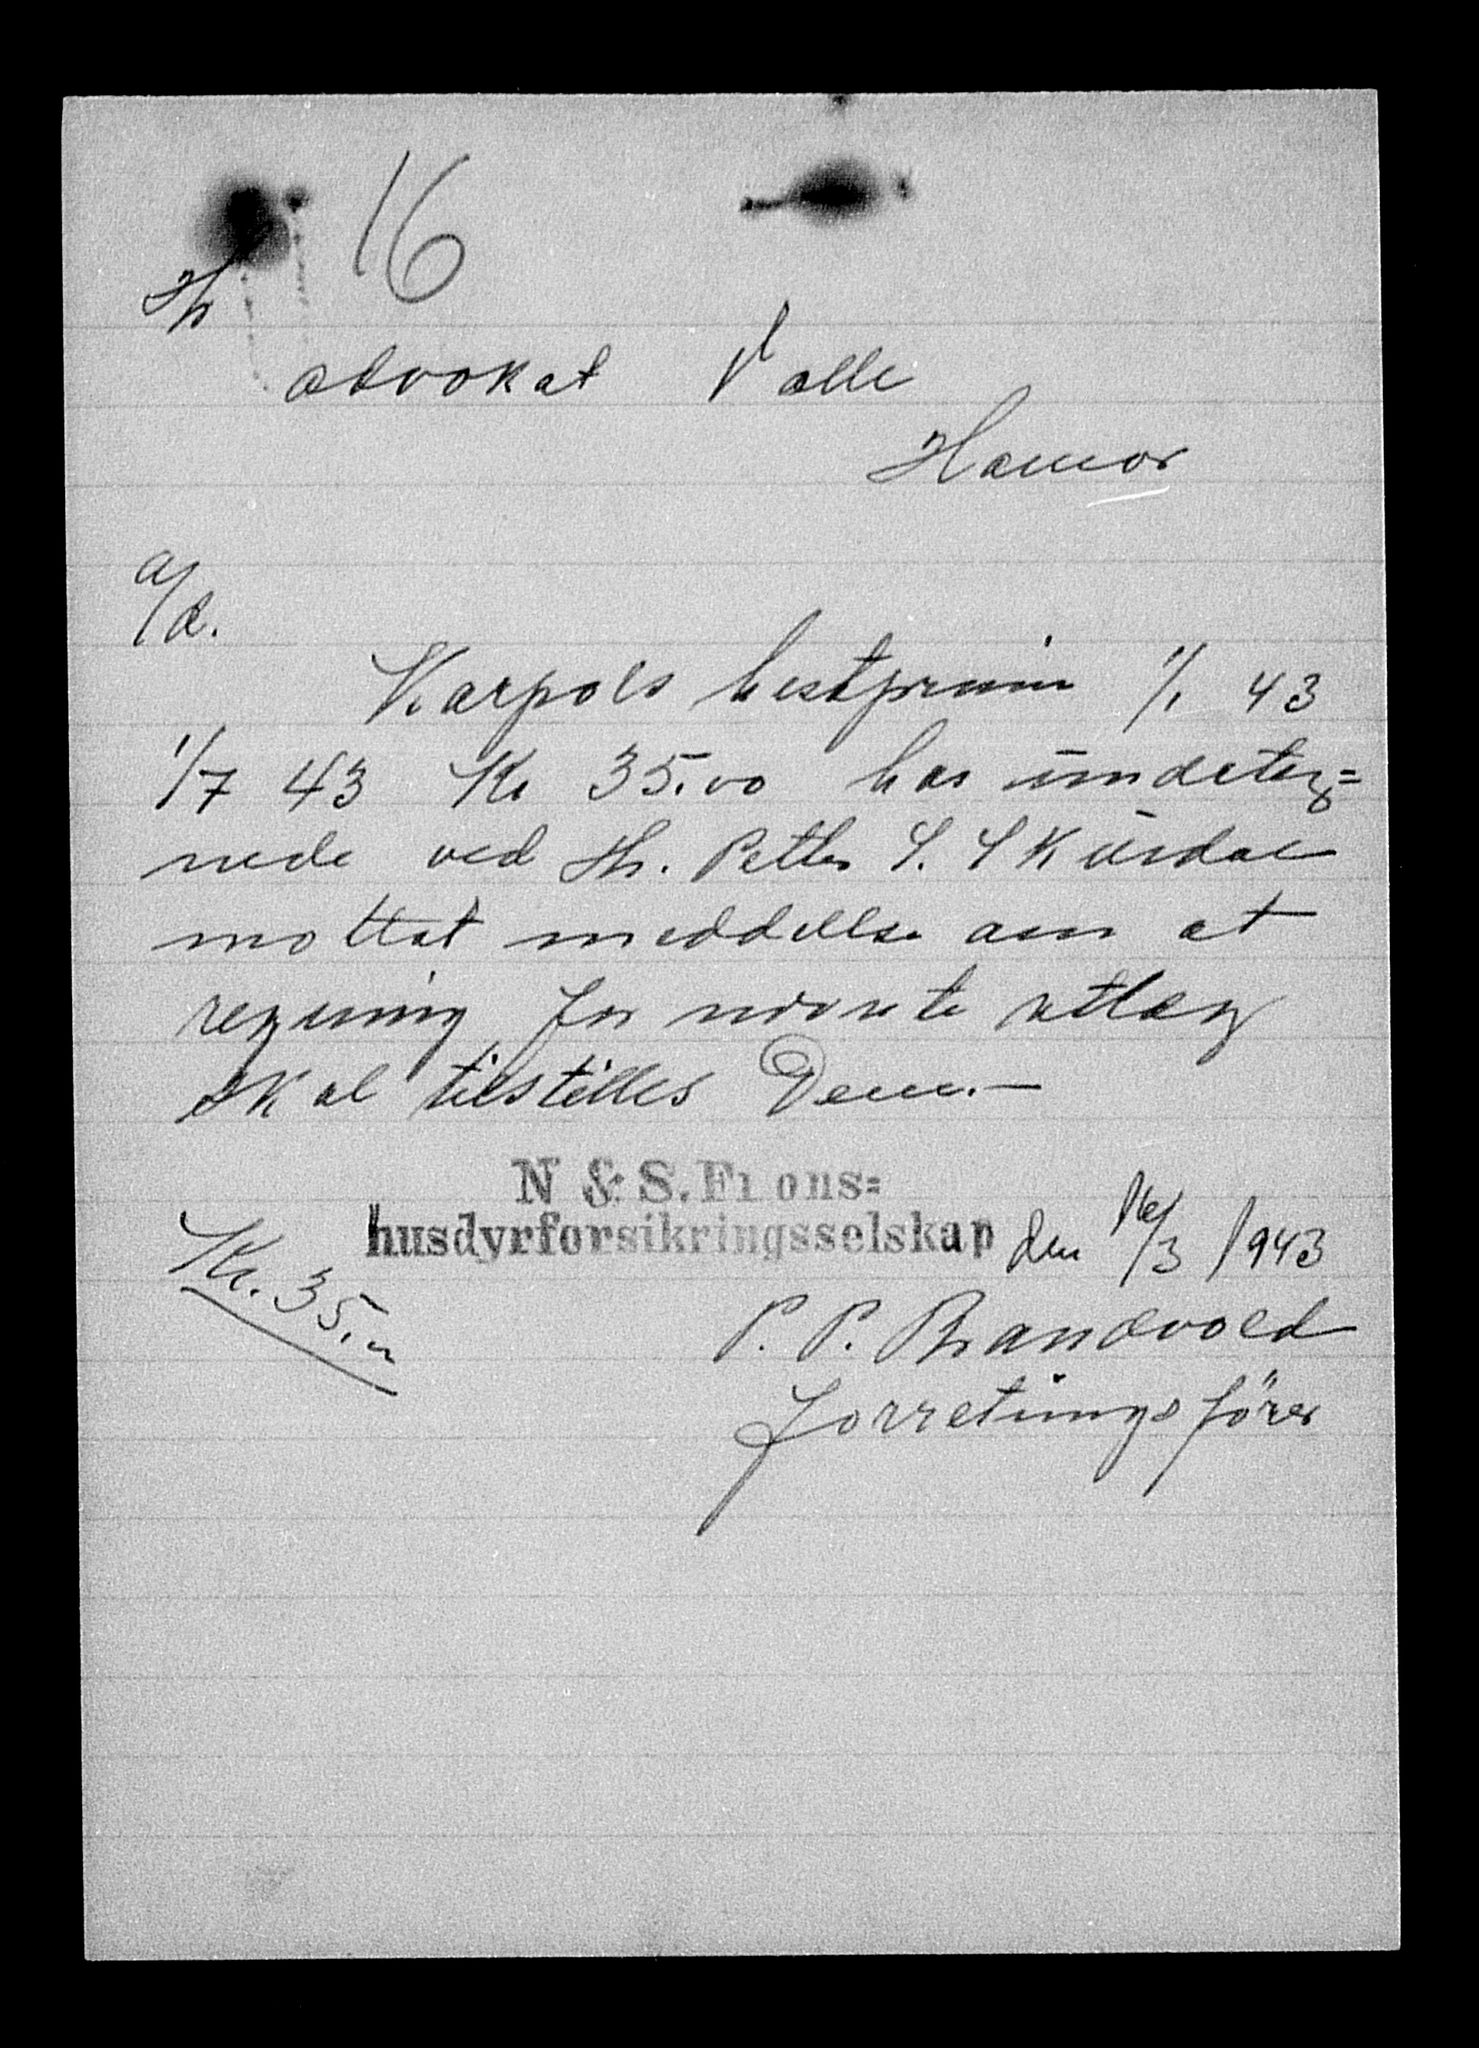 16
Hr
advokat Valle
Hamar
a/d.
Karpols hestpremie 1/1 43
1/7 43 Kr 35.00 har undeteg=
nede ved Hr. Petter S. Skurdal
mottat meddelse om at
regning for nevnte utlæg
skal tilstilles Dem.—
N & S. Frons=
husdyrforsikringsselskap den 16/3 1943
Kr. 35.00
P. P. Brandvold
forretingsförer